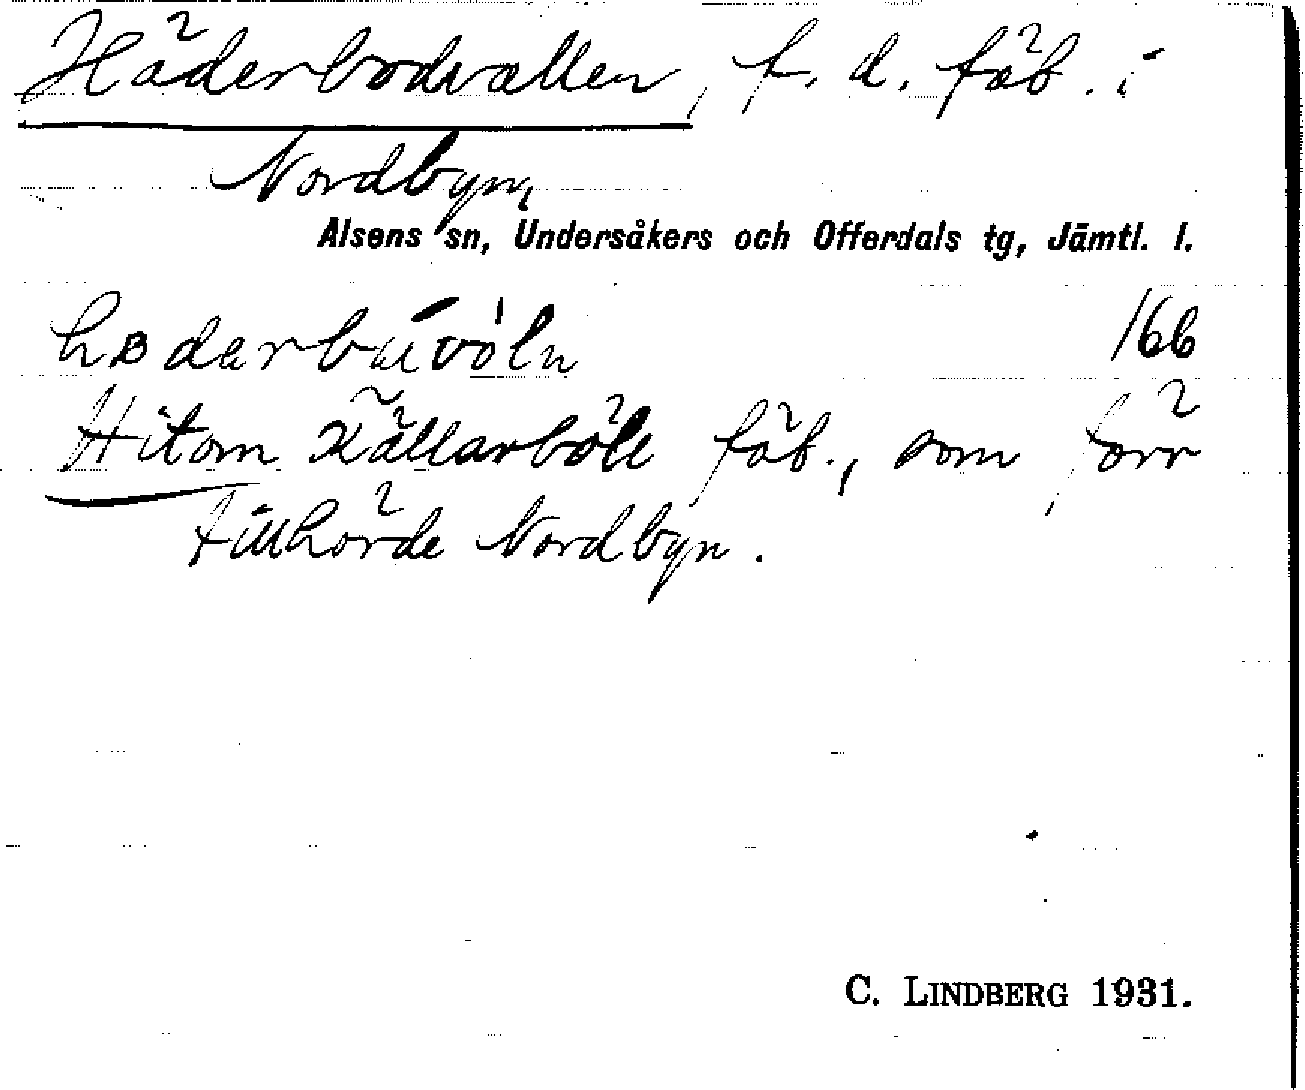 Häderbodvallen, f. d. fäb. i
Nordbyn,
Alsens sn, Undersåkers och Offerdals tg, Jämtl. l.
166
Hitom Källarböle fäb., som förr
tillhörde Nordbyn.
C. LINDBERG 1931.